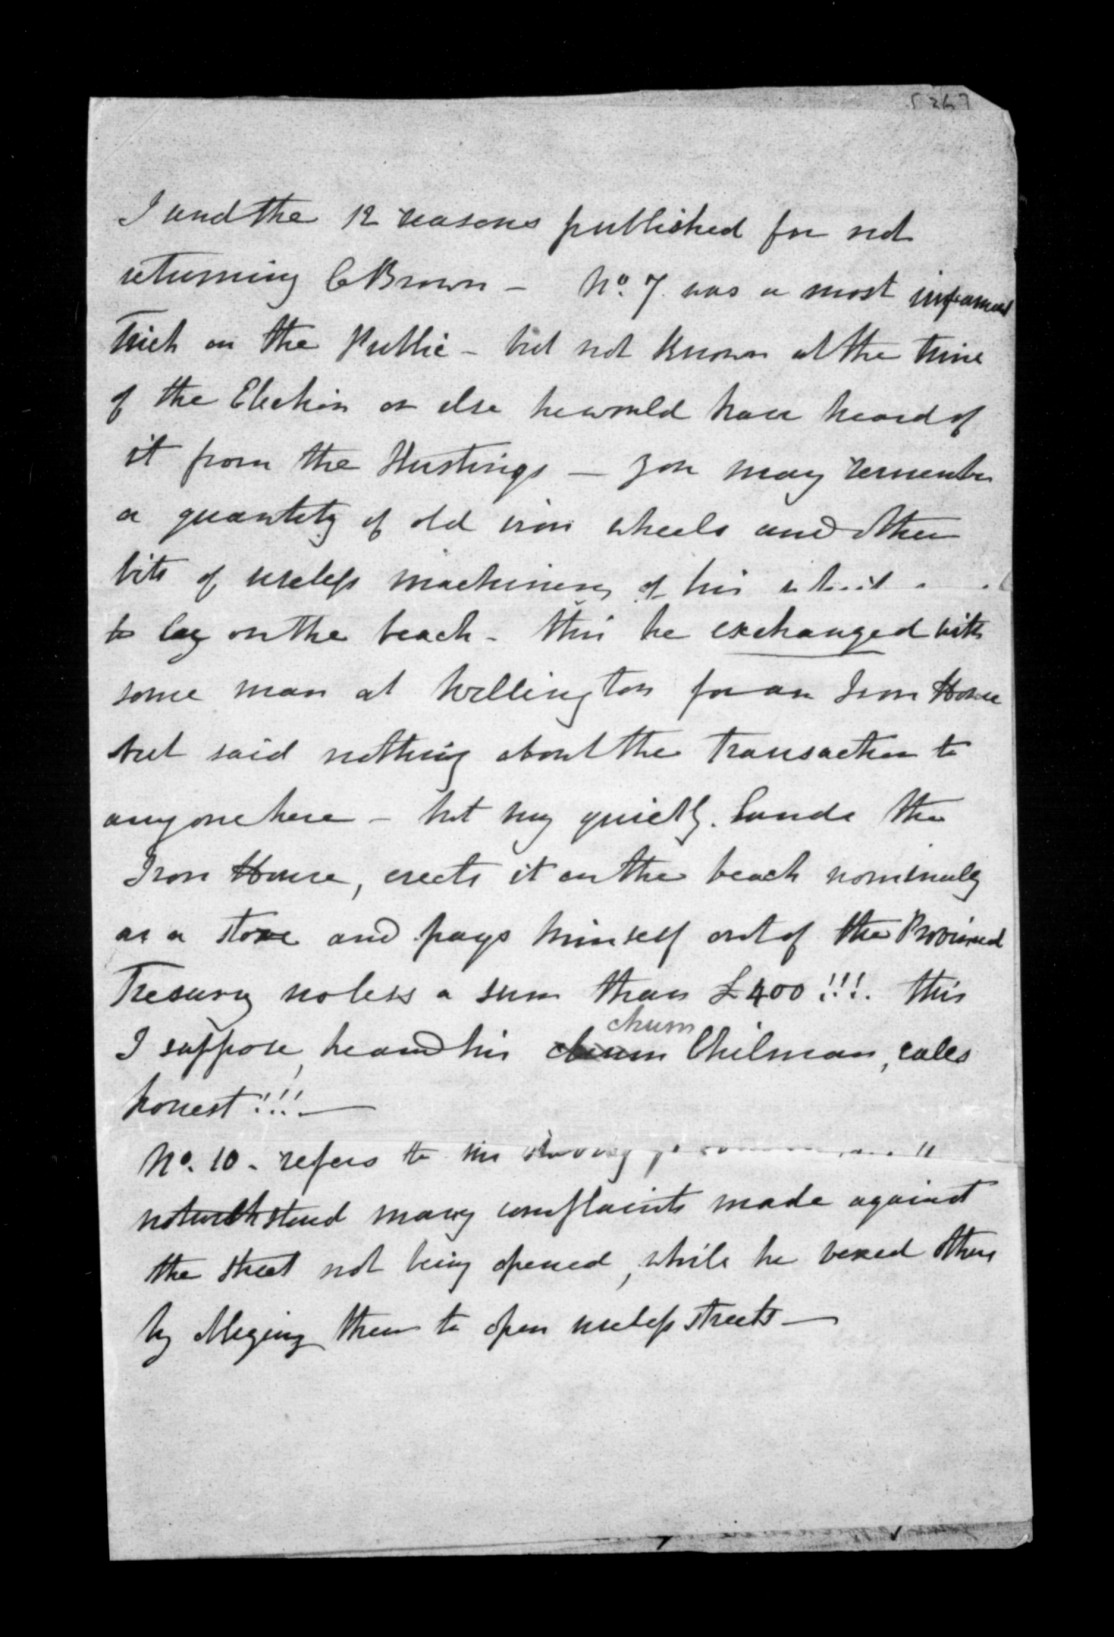 I send the 12 reasons published for not
returning C Brown - No. 7. was a most infamous
Trick on the Public - but not known at the time
of the Election or else he would have heard of
it from the Hustings - you may remember
a quantity of old iron wheels and other
bits of useless machinery of his
to lay on the beach - this he exchanged with
some man at Wellington for an Iron House
but said nothing about the Transaction to
anyone here - but very quietly lands the
Iron House, erects it on the beach nominally
as a store and pays himself out of the Provincial
Tresury no less a sum than £400!!!. this
I suppose, he and his chum chum Chilman, cales
honest!!! -
No. 10 - refers to his
notwithstand many complaints made against
the street not being opened, while he vexed others
by obleging them to open useless streets -